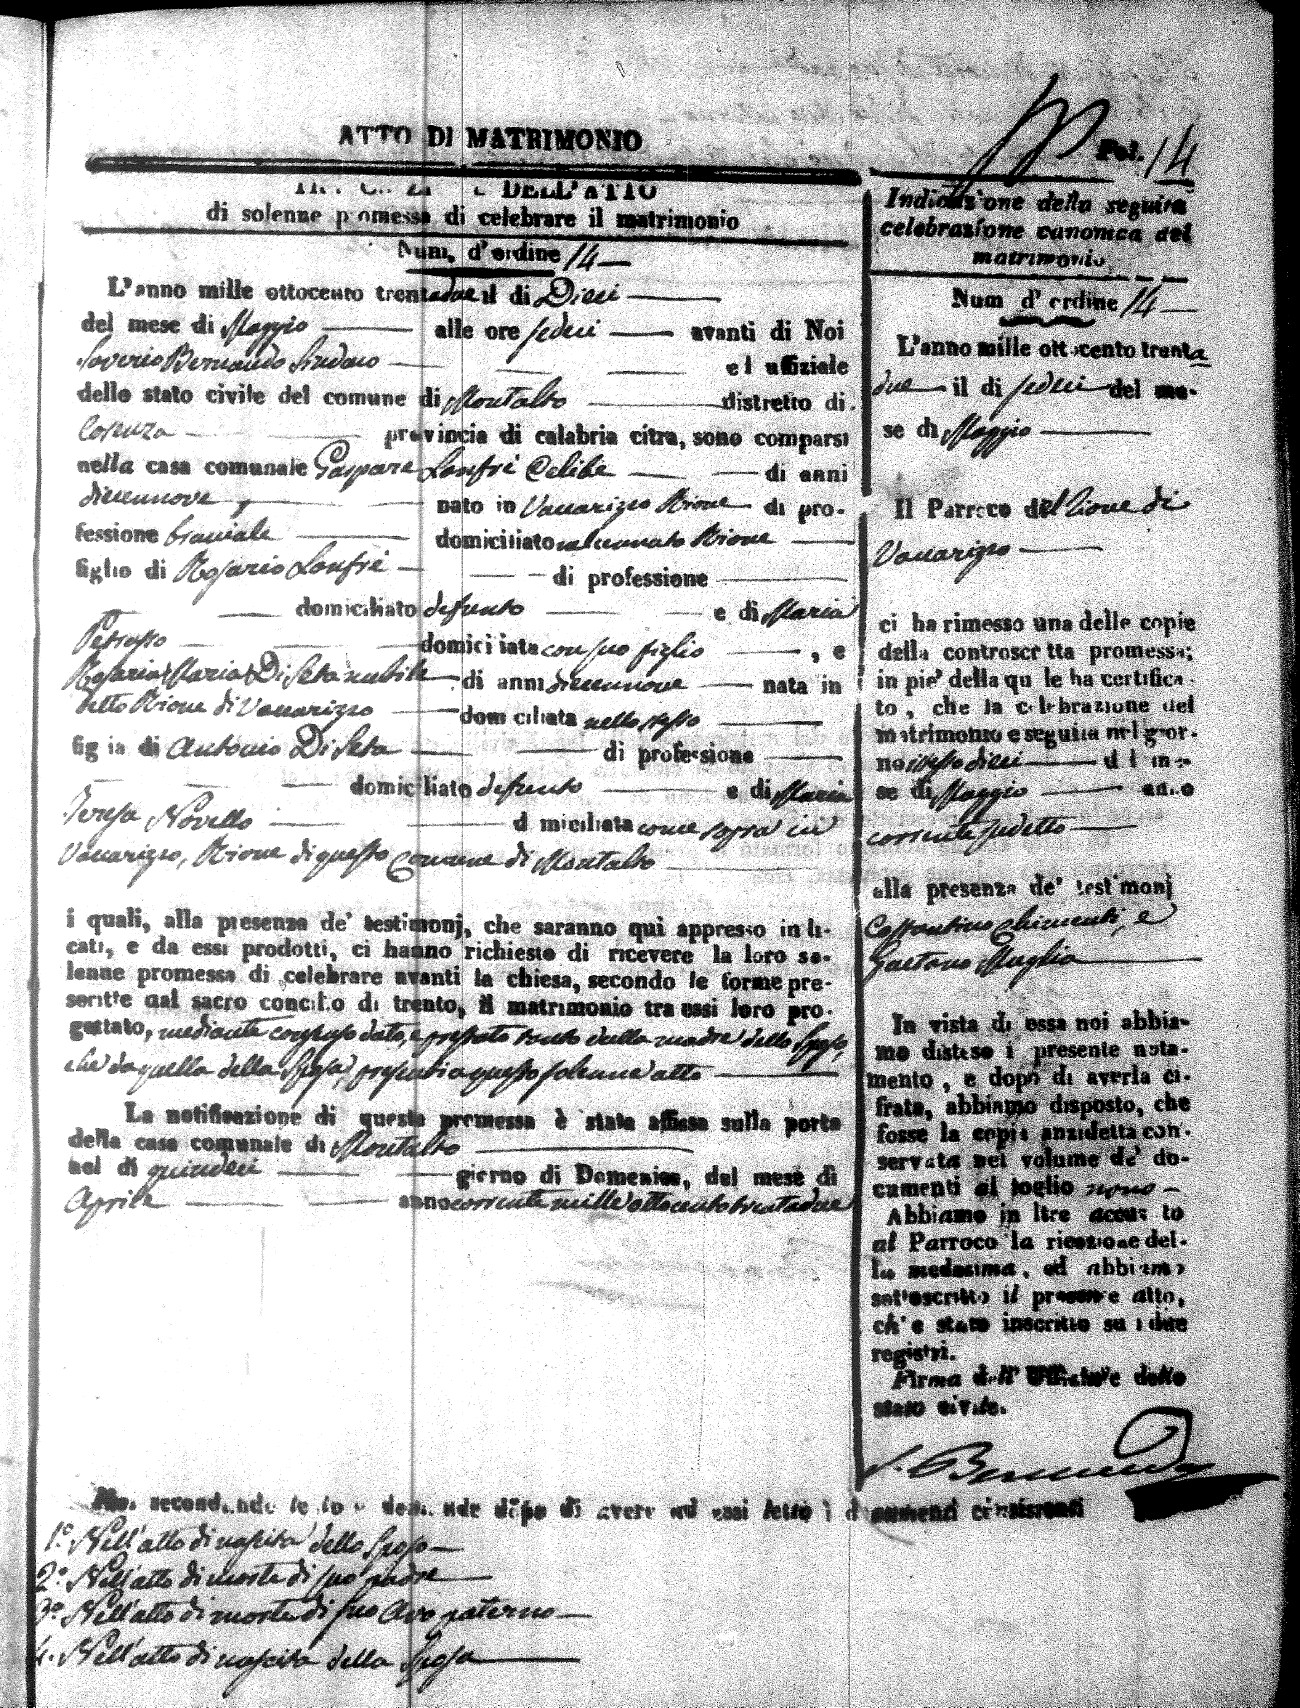 ATTO DI MATRIMONIO
Fol. 14
DELL'ATTO
di solenne promessa di celebrare il matrimonio
Num. d'ordine 14
L'anno mille ottocento trentadue il di Dieci
del mese di Maggio alle ore sedeci avanti di Noi
Saverio Bernardo Sindaco ed uffiziale
dello stato civile del comune di Montalto distretto di
Cosenza provincia di calabria citra, sono comparsi
nella casa comunale Gaspare Lanfrè Celibe di anni
diecennove nato in Vaccarizzo Rione di pro-
fessione bracciale domiciliato nel cennato Rione
figlio di Rosario Lanfrè di professione
domiciliato defunto e di Maria
Petrasso domiciliata con suo figlio , e
Rosaria Maria Di Seta nubile di anni diecennove nata in
detto Rione di Vaccarizzo domiciliata nello stesso
figlia di Antonio Di Seta di professione
domiciliato defunto e di Maria
Teresa Novello domiciliata come sopra in
Vaccarizzo, Rione di questo Comune di Montalto
i quali, alla presenza de' testimonj, che saranno qui appresso indi-
cati, e da essi prodotti, ci hanno richiesto di ricevere la loro so-
lenne promessa di celebrare avanti la chiesa, secondo le forme pre-
scritte dal sacro concilio di trento, il matrimonio tra essi loro pro-
gettato, mediante consenso dato, e prestato tanto dalla madre dello Sposo,
che da quella della Sposa, presenti a questo solenne atto
La notificazione di questa promessa è stata affissa sulla porta
della casa comunale di Montalto
nel di quindeci giorno di Domenica, del mese di
Aprile anno corrente mille ottocento trentadue
Noi secondando le loro domande dopo di avere ad essi letto i documenti consistenti
1.° Nell'atto di nascita dello Sposo
2.° Nell'atto di morte di suo padre
3.° Nell'atto di morte di suo Avo paterno
4. Nell'atto di nascita della Sposa
Indicazione della seguita
celebrazione canonica del
matrimonio
Num d'ordine 14
L'anno mille ottocento trenta
due il di sedeci del me-
se di Maggio
Il Parroco del Rione di
Vaccarizzo
ci ha rimesso una delle copie
della controscritta promessa;
in pie' della quale ha certifica-
to, che la celebrazione del
matrimonio e seguita nel gior-
no dieci del me-
se di Maggio anno
corrente sudetto
alla presenza de' testimonj
Costantino Chimenti, e
Gaetano Muglia
In vista di essa noi abbia-
mo disteso il presente nota-
mento, e dopo di averla ci-
frata, abbiamo disposto, che
fosse la copia anzidetta con-
servata nel volume de' do-
cumenti al foglio nono
Abbiamo inoltre accusato
al Parroco la ricezione del-
la medesima, ed abbiamo
sottoscritto il presente atto,
ch'e stato inscritto su i due
registri.
Firma dell' Uffiziale dello
stato civile.
S. Bernardo